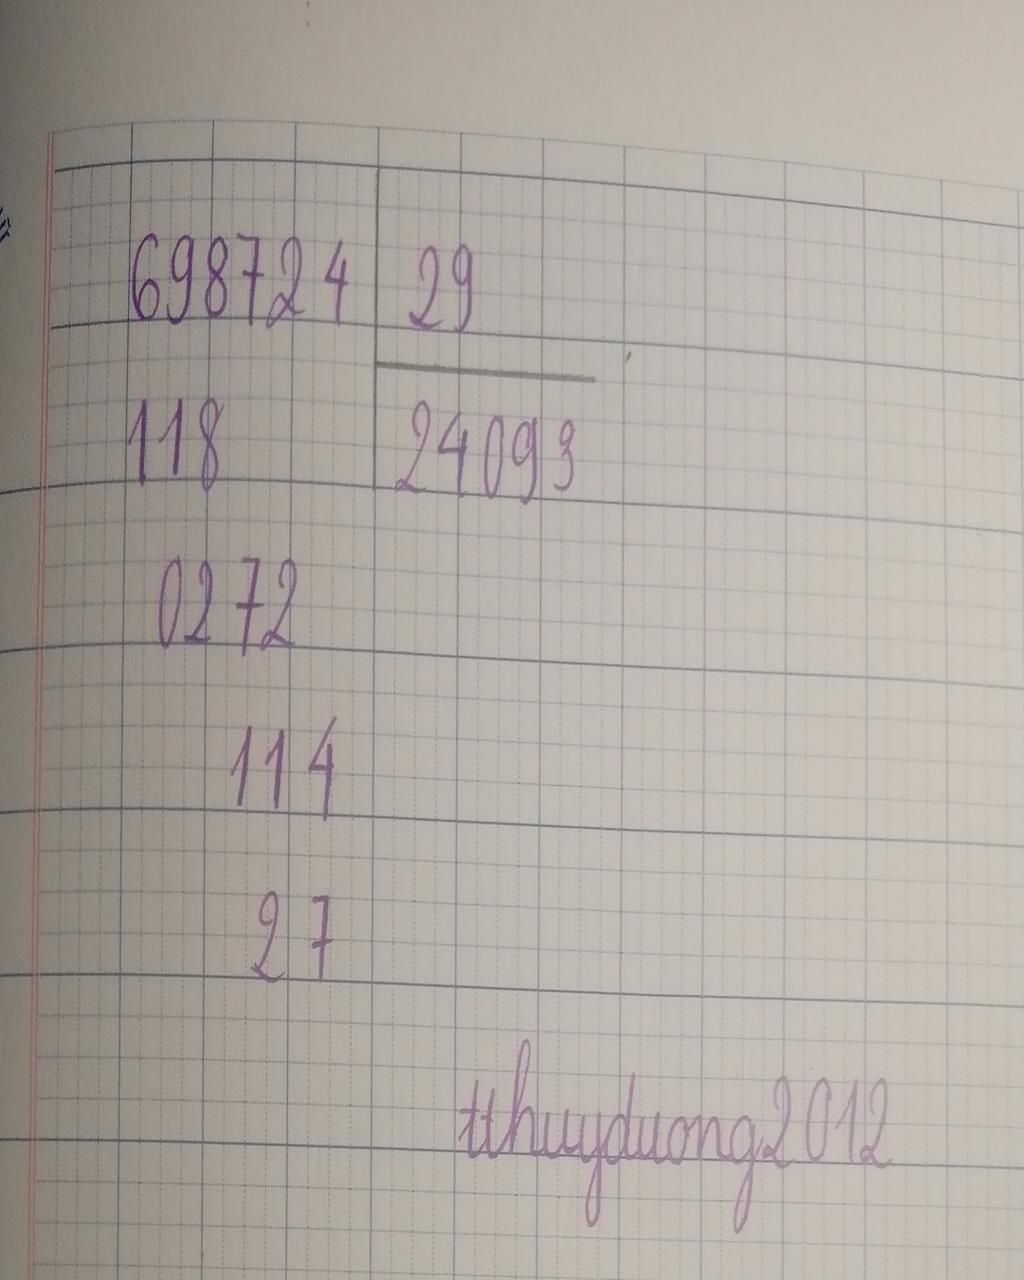 698724 29
118 24093
0272
114
27
tthuyduong2012